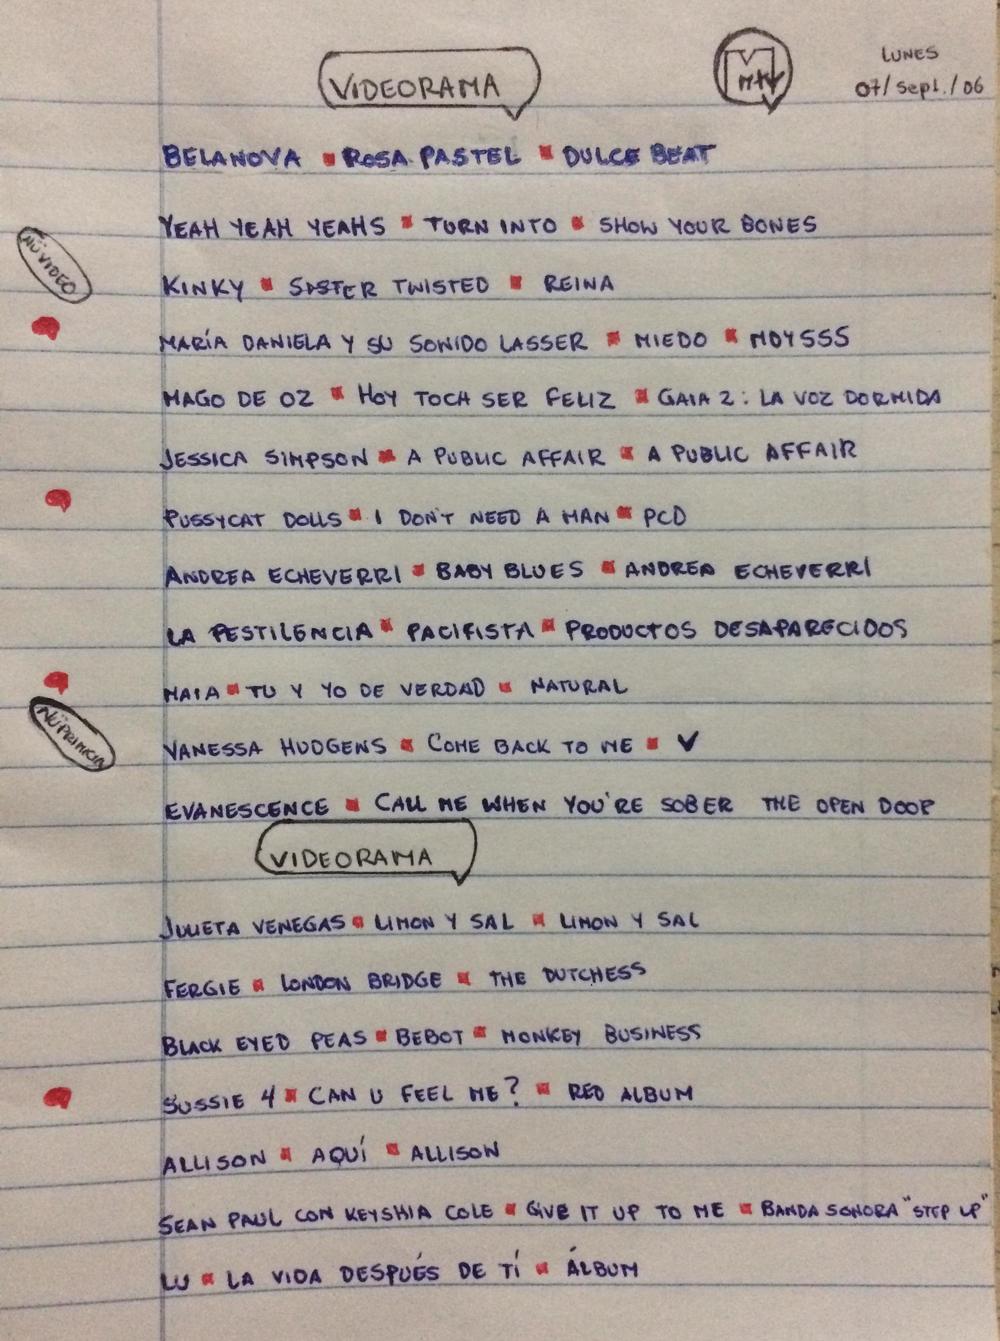 VIDEORAMA
MTV
LUNES
07/Sept./06
BELANOVA ▪ ROSA PASTEL ▪ DULCE BEAT
YEAH YEAH YEAHS ▪ TURN INTO ▪ SHOW YOUR BONES
NÜ VIDEO
KINKY ▪ SISTER TWISTED ▪ REINA
MARÍA DANIELA Y SU SONIDO LASSER ▪ MIEDO ▪ MDYSSS
MAGO DE OZ ▪ HOY TOCA SER FELIZ ▪ GAIA 2: LA VOZ DORMIDA
JESSICA SIMPSON ▪ A PUBLIC AFFAIR ▪ A PUBLIC AFFAIR
PUSSYCAT DOLLS ▪ I DON'T NEED A MAN ▪ PCD
ANDREA ECHEVERRI ▪ BABY BLUES ▪ ANDREA ECHEVERRI
LA PESTILENCIA ▪ PACIFISTA ▪ PRODUCTOS DESAPARECIDOS
MAIA ▪ TU Y YO DE VERDAD ▪ NATURAL
NÜ PRIMICIA
VANESSA HUDGENS ▪ COME BACK TO ME ▪ V
EVANESCENCE ▪ CALL ME WHEN YOU'RE SOBER THE OPEN DOOR
VIDEORAMA
JULIETA VENEGAS ▪ LIMON Y SAL ▪ LIMON Y SAL
FERGIE ▪ LONDON BRIDGE ▪ THE DUTCHESS
BLACK EYED PEAS ▪ BEBOT ▪ MONKEY BUSINESS
SUSSIE 4 ▪ CAN U FEEL ME? ▪ RED ALBUM
ALLISON ▪ AQUÍ ▪ ALLISON
SEAN PAUL CON KEYSHIA COLE ▪ GIVE IT UP TO ME ▪ BANDA SONORA "STEP UP"
LU ▪ LA VIDA DESPUÉS DE TÍ ▪ ÁLBUM